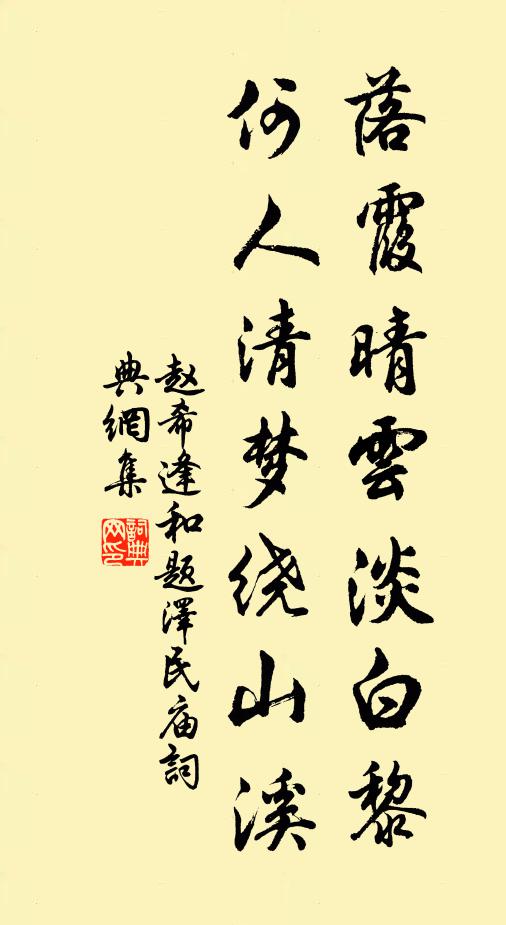 落霞晴雲淡白黎
何人清梦绕山溪
赵希逢和题澤民庙詞
典網集
詞典網印